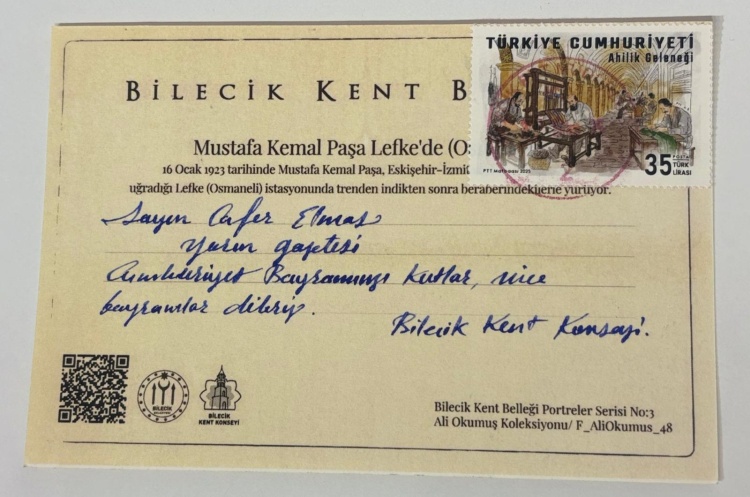 TÜRKİYE CUMHURİYETİ
Ahilik Geleneği
35 POSTA TÜRK LİRASI
PTT Matbaası 2025
BİLECİK KENT B
Mustafa Kemal Paşa Lefke'de (O
16 Ocak 1923 tarihinde Mustafa Kemal Paşa, Eskişehir-İzmi
uğradığı Lefke (Osmaneli) istasyonunda trenden indikten sonra beraberindekilerle yürüyor.
Sayın Cafer Elmas
Yarın gazetesi
Cumhuriyet Bayramınızı kutlar, nice
bayramlar dileriz.
Bilecik Kent Konseyi.
BİLECİK
BİLECİK
KENT KONSEYİ
Bilecik Kent Belleği Portreler Serisi No:3
Ali Okumuş Koleksiyonu/ F_AliOkumus_48